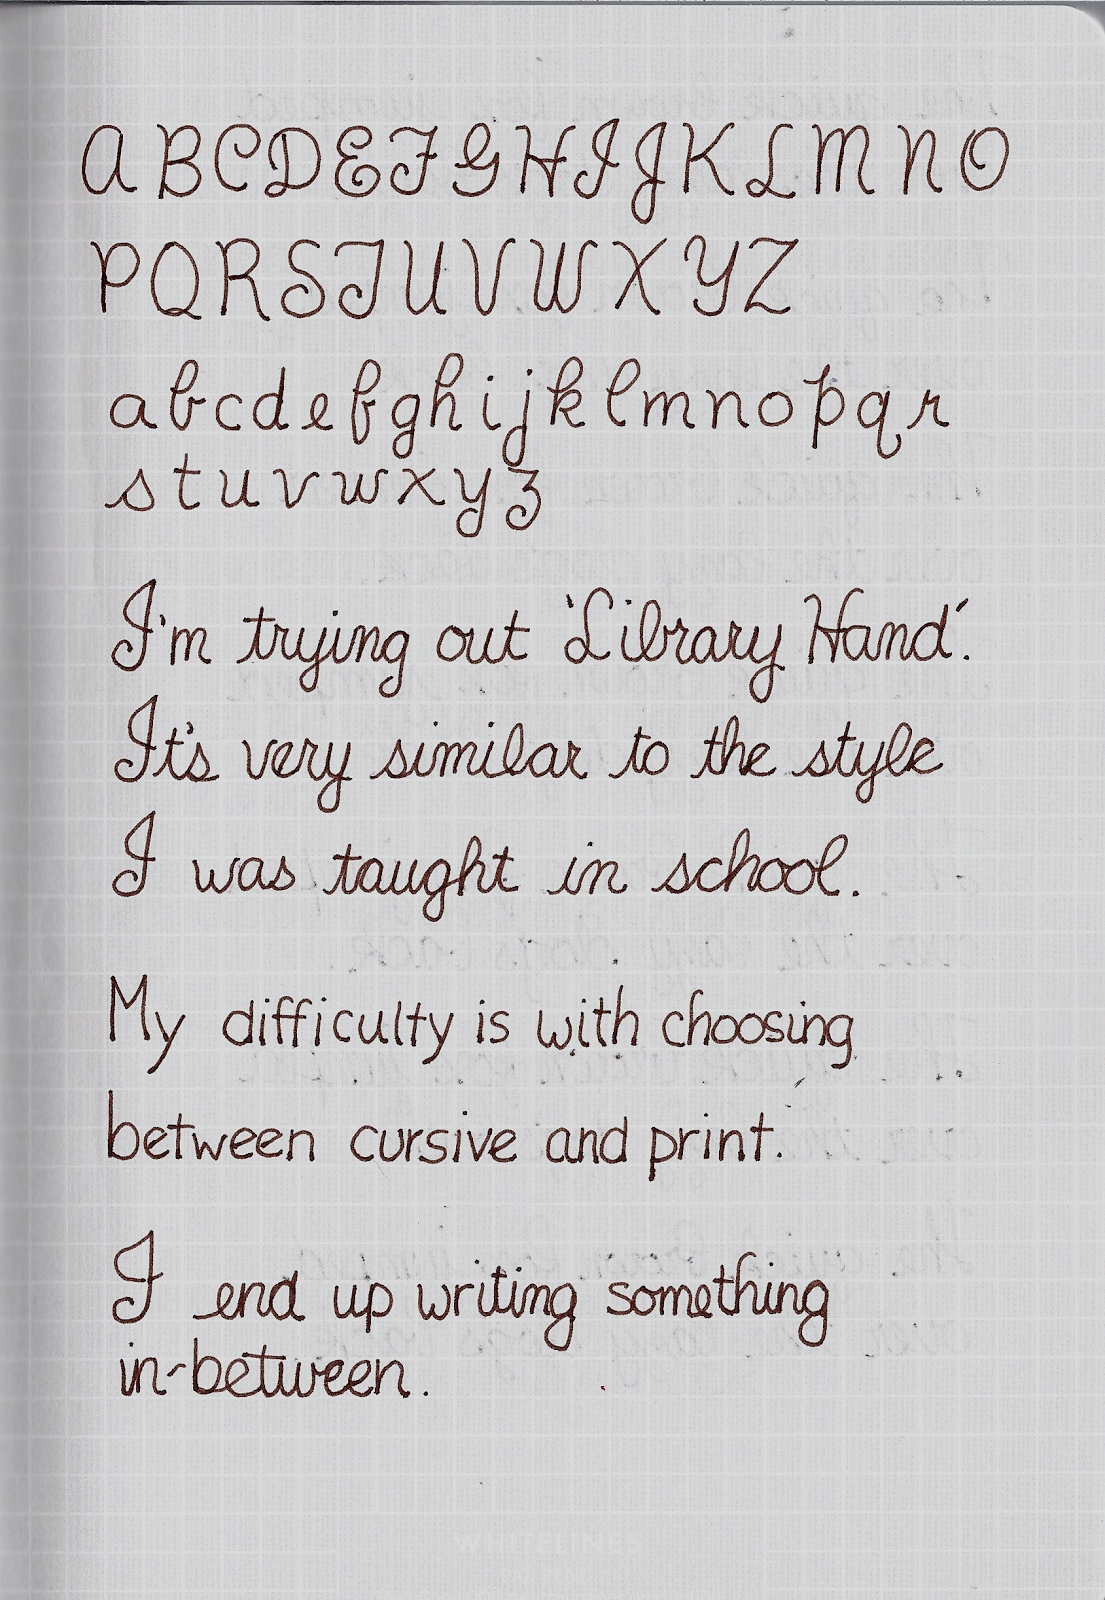 A B C D E F G H I J K L M N O
P Q R S T U V W X Y Z
a b c d e f g h i j k l m n o p q r
s t u v w x y z
I'm trying out 'Library Hand'.
It's very similar to the style
I was taught in school.
My difficulty is with choosing
between cursive and print.
I end up writing something
in-between.
WHITELINES